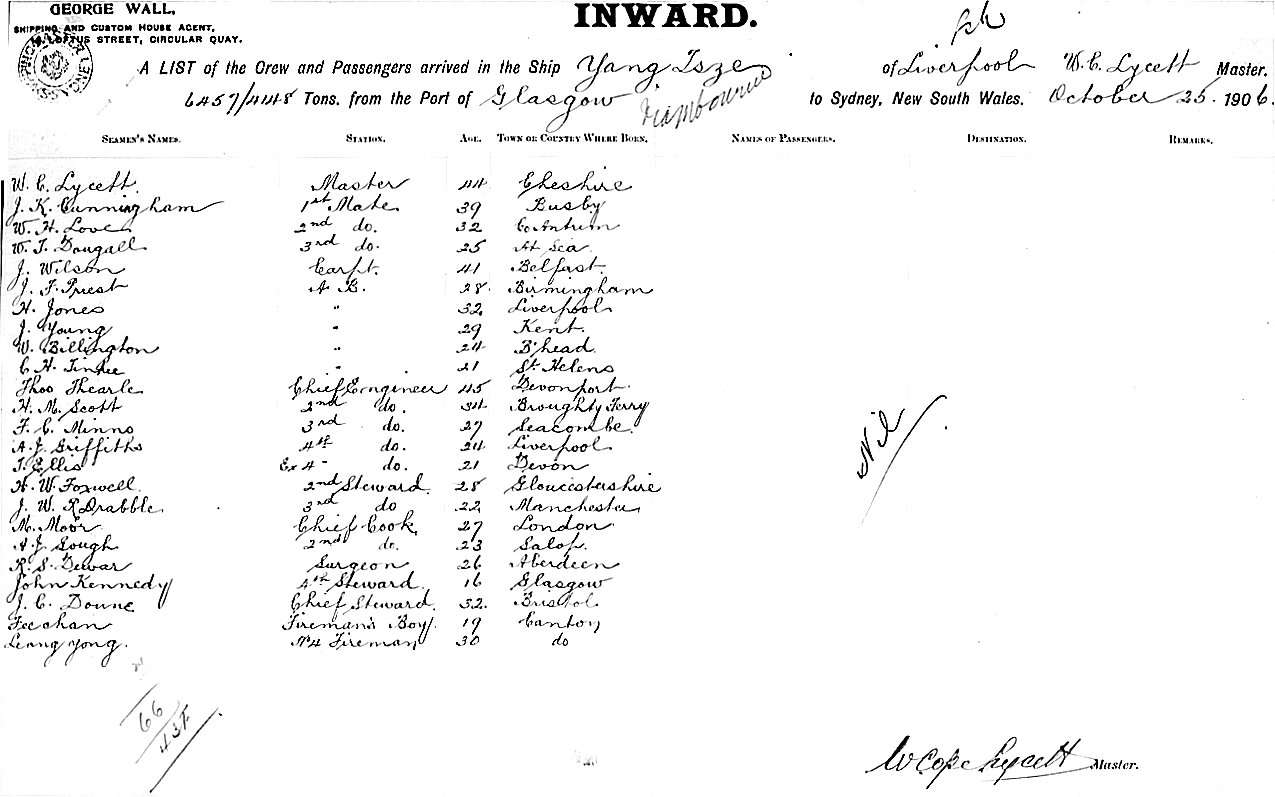 GEORGE WALL,
SHIPPING AND CUSTOM HOUSE AGENT,
LOFTUS STREET, CIRCULAR QUAY.
INWARD.
A LIST of the Crew and Passengers arrived in the Ship Yang Tsze of Liverpool W. C. Lycett Master.
6457/448 Tons. from the Port of Glasgow to Sydney, New South Wales. October 25. 1906.
SEAMEN'S NAMES. STATION. AGE. TOWN OR COUNTRY WHERE BORN. NAMES OF PASSENGERS. DESTINATION. REMARKS.
W. C. Lycett. Master 44 Cheshire
J. K. Cunningham 1st Mate. 39 Busby
W. H. Love 2nd do. 32 Co Antrim
W. T. Dougall 3rd do. 25 At Sea.
J. Wilson Carpt. 41 Belfast.
J. F. Priest A B. 28. Birmingham
H. Jones " 32. Liverpool
J. Young " 29 Kent.
W. Billington " 24 B'head.
C. H. " 21 St. Helens
Thos Thearle Chief Engineer 45 Devonport.
H. M. Scott 2nd do. 34 Broughty Ferry
F. C. Minns 3rd do. 27 Seacombe.
A. J. Griffiths 4th do. 24 Liverpool
T. Ellis Ex 4" do. 21 Devon
H. W. Foxwell. 2nd Steward. 28 Gloucestershire
J. W. R Drabble. 3rd do 22 Manchester
M. Moor Chief Cook. 27 London
A. J. Gough 2nd do. 23 Salop.
R. S. Dewar Surgeon 26 Aberdeen
John Kennedy 4th Steward. 16 Glasgow
J. C. Doune Chief Steward. 32. Bristol
Fee chan Fireman's Boy. 19 Canton
Leang yong. No 4 Fireman 30 do
Nil
66
W Cope Lycett Master.